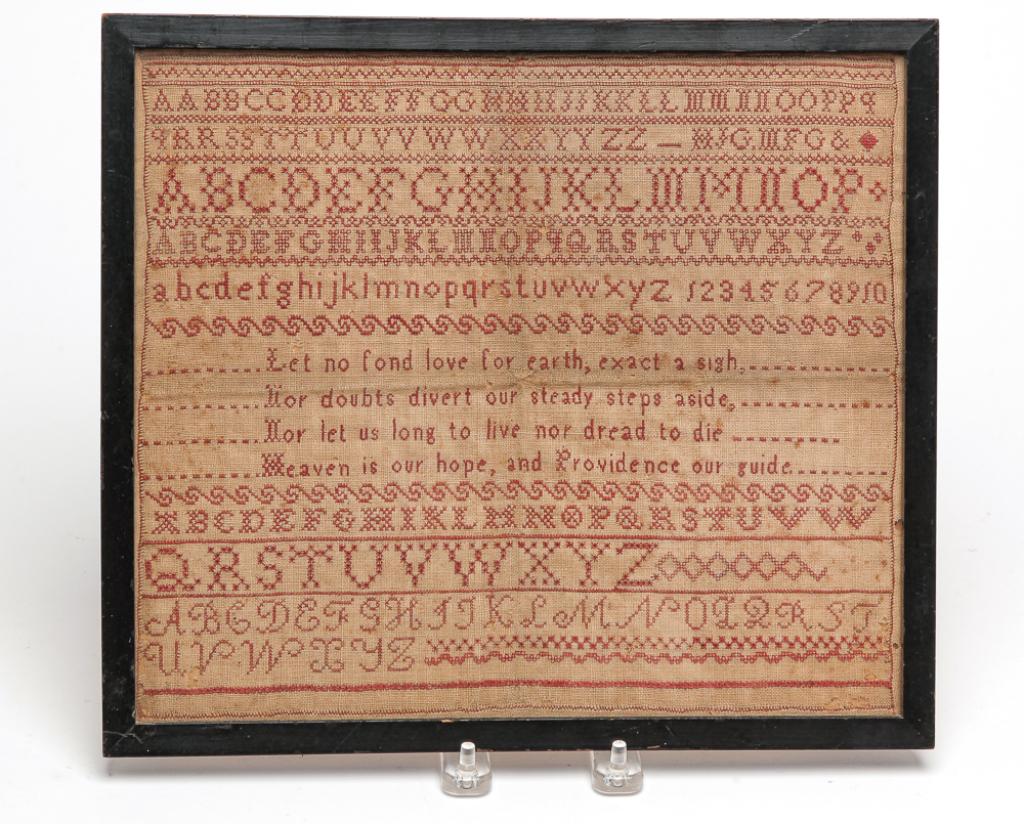 AABBCCDDEEFFGGHHIIJJKKLLMMNNOOPPq
qRRSSTTUUVVWWXXYYZZ — WJGMFG&
ABCDEFGHIJKLMNOP
ABCDEFGHIJKLMNOPqQRSTUVWXYZ
abcdefghijklmnopqrstuvwxyz 12345678910
Let no fond love for earth, exact a sigh,
Nor doubts divert our steady steps aside,
Nor let us long to live nor dread to die
Heaven is our hope, and Providence our guide
ABCDEFGHIKLMNOPQRSTUVW
QRSTUVWXYZ
ABCDEFGHIJKLMNOPQRST
UVWXYZ